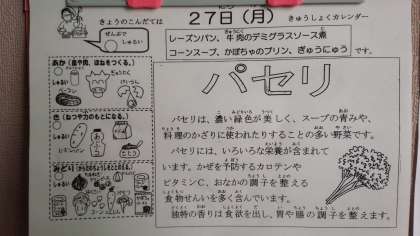 きょうのこんだては
27日(月)
きゅうしょくカレンダー
ぜんぶで
しゅるい
レーズンパン、牛肉のデミグラスソース煮
コーンスープ、かぼちゃのプリン、ぎゅうにゅう です。
あか(血や肉、ほねをつくる。)
しゅるい
ぎゅうにく
き(ねつや力のもとになる。)
しゅるい
みどり
しゅるい
パセリ
パセリは、濃い緑色が美しく、スープの青みや、
料理のかざりに使われたりすることの多い野菜です。
パセリには、いろいろな栄養が含まれて
います。かぜを予防するカロテンや
ビタミンC、おなかの調子を整える
食物せんいを多く含んでいます。
独特の香りは食欲を出し、胃や腸の調子を整えます。